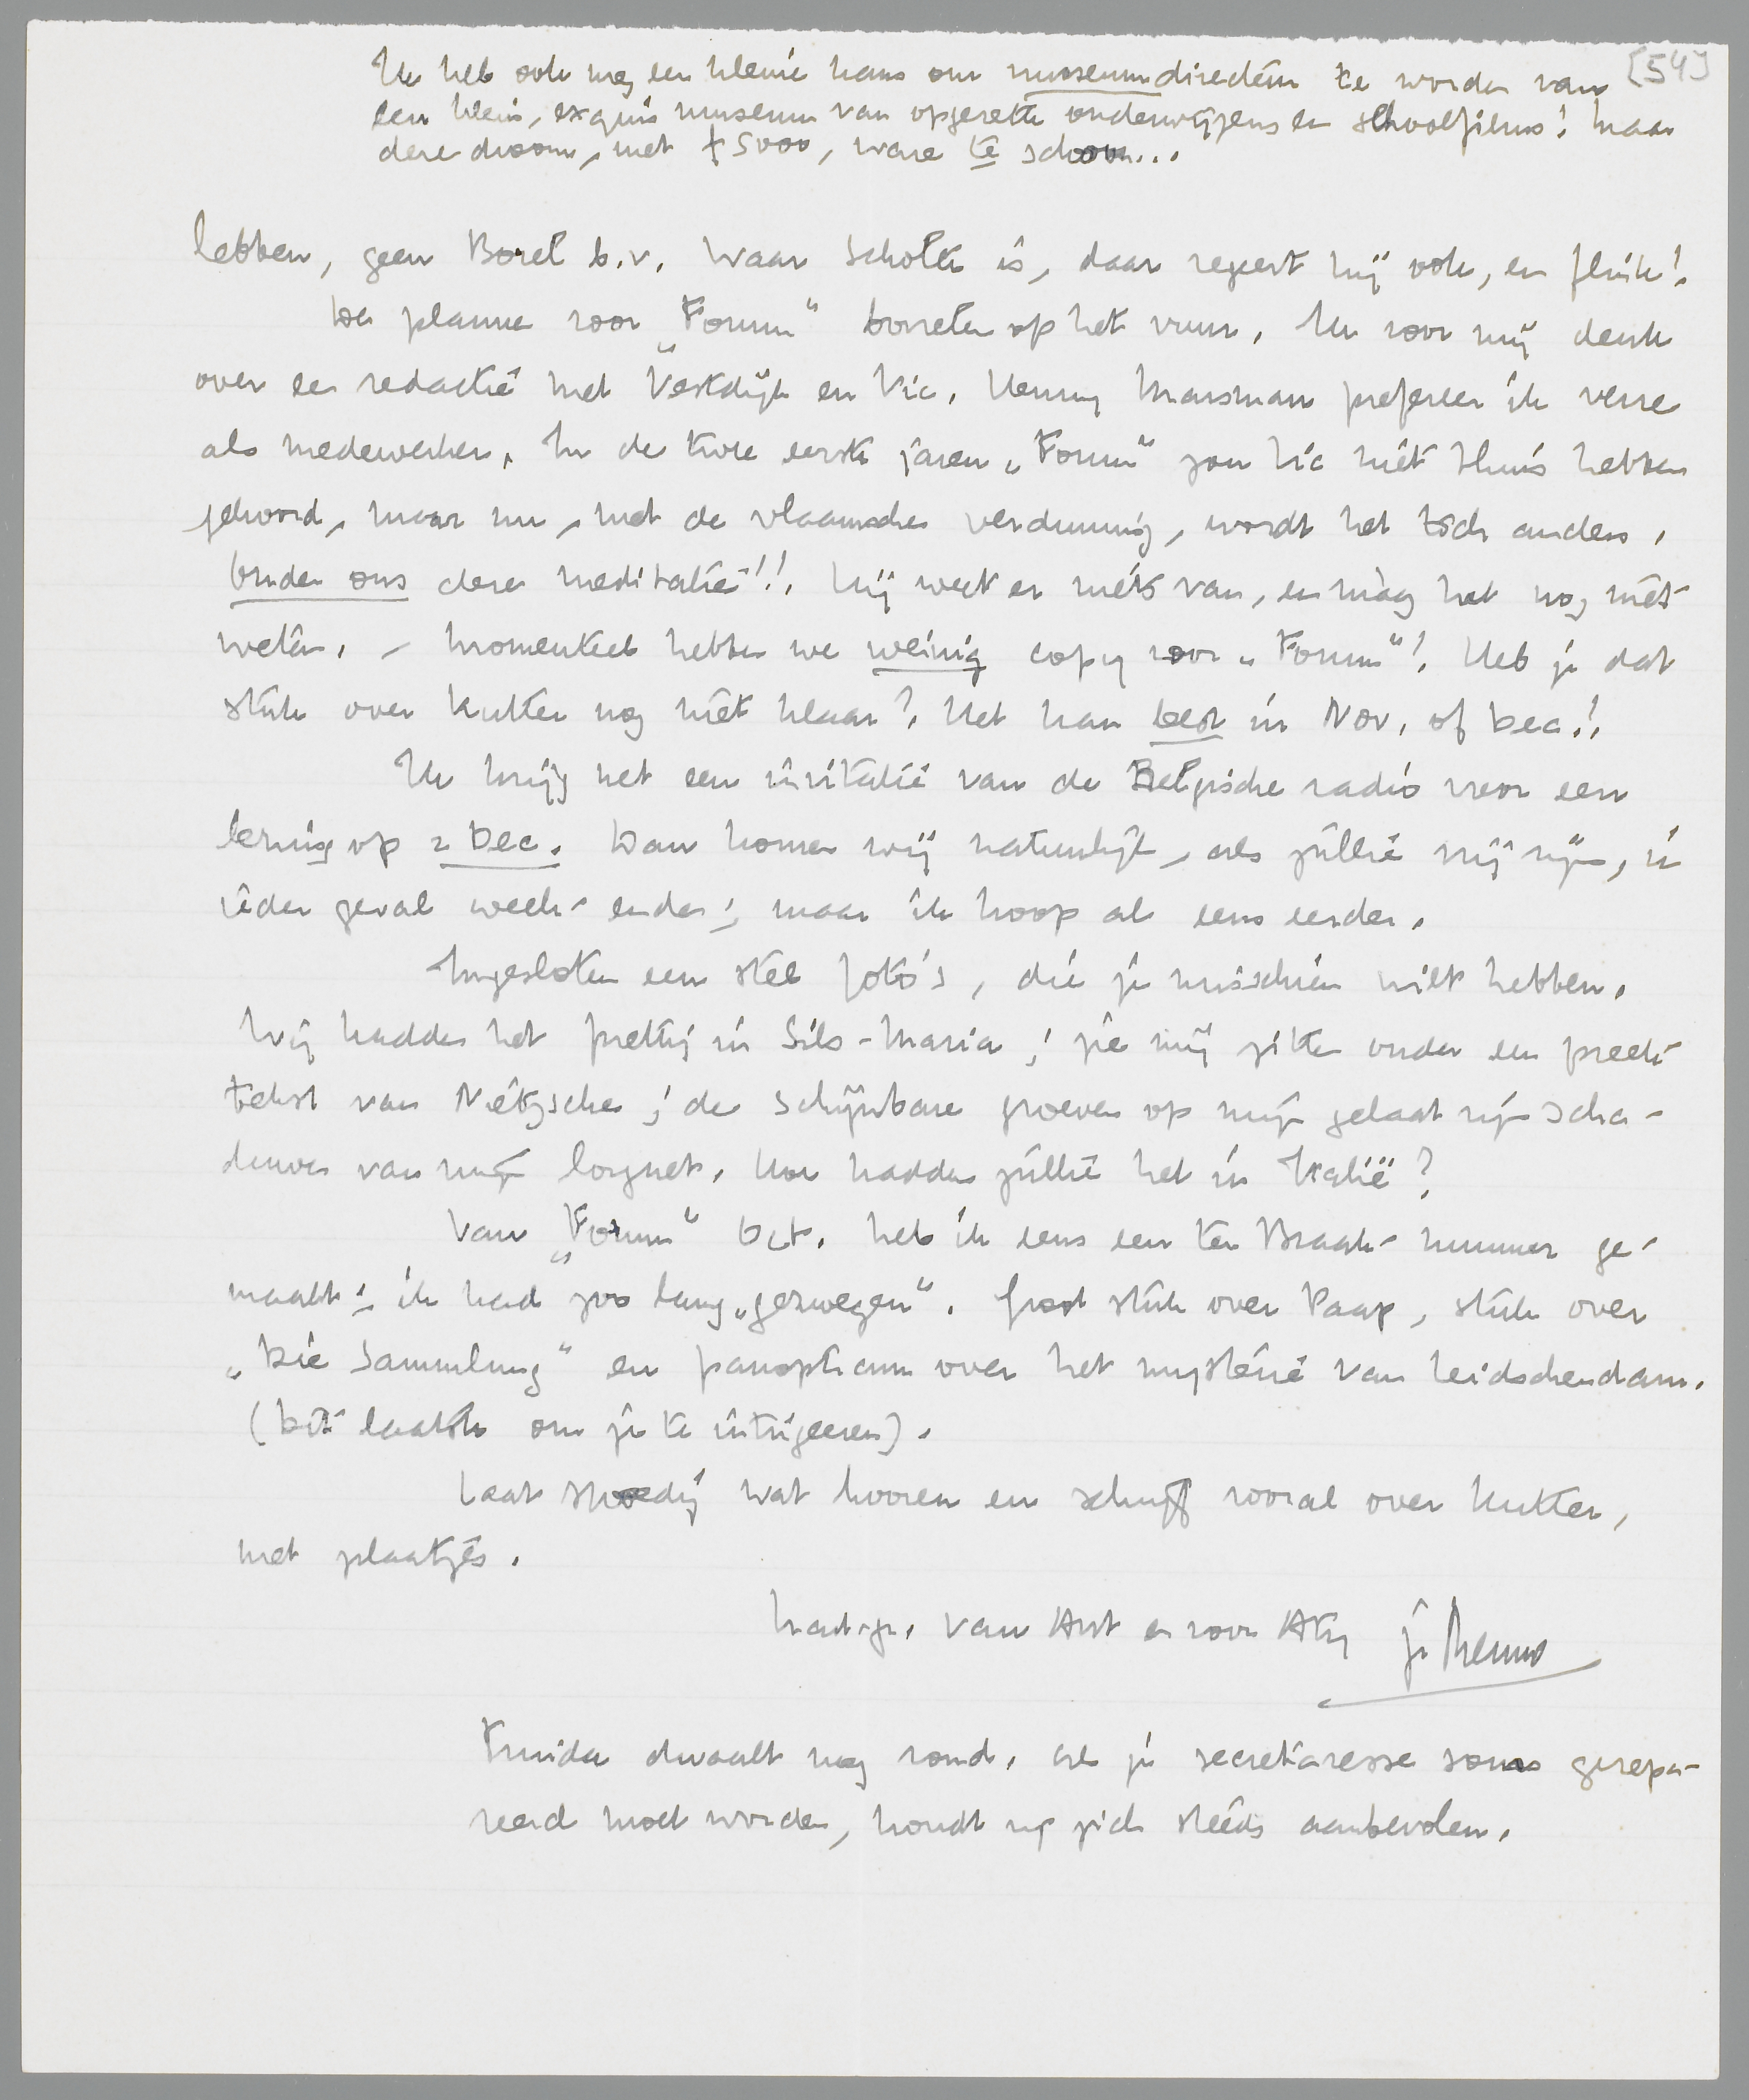 [54]
Ik heb ook nog een kleine kans om museumdirecteur te worden van
een klein, exquis museum van opgezette onderwijzers en schoolfilms! Maar
deze droom, met f 5000, ware te schoon...
hebben, geen Borel b.v. Waar Scholte is, daar regeert hij ook, en flink!
De plannen voor „Forum" borrelen op het vuur. Ik voor mij denk
over een redactie met Vestdijk en Vic. Henny Marsman prefereer ik verre
als medewerker. In de twee eerste jaren „Forum" zou Vic niet thuis hebben
gehoord, maar nu, met de vlaamsche verdunning, wordt het toch anders.
Onder ons deze meditatie!! Hij weet er niets van, en màg het nog niet
weten. – Momenteel hebben we weinig copy voor „Forum"! Heb je dat
stuk over Kutter nog niet klaar? Het kan best in Nov. of Dec.!
Ik krijg net een invitatie van de Belgische radio voor een
lezing op 2 Dec. Dan komen wij natuurlijk, als jullie vrij zijn, in
ieder geval week-enden; maar ik hoop al eens eerder.
Ingesloten een stel foto's, die je misschien wilt hebben.
Wij hadden het prettig in Sils-Maria; zie mij zitten onder een preek-
tekst van Nietzsche; de schijnbare groeven op mijn gelaat zijn scha-
duwen van mijn lorgnet. Hoe hadden jullie het in Italië?
Van „Forum" Oct. heb ik eens een ter Braak-nummer ge-
maakt; ik had zoo lang „gezwegen". Groot stuk over Paap, stuk over
„Die Sammlung" en panopticum over het mysterie van Leidschendam.
(Dit laatste om je te intrigeeren).
Laat spoedig wat hooren en schrijf vooral over Kutter,
met plaatjes.
Hart. gr. van Ant en voor Atty je Menno
Truida dwaalt nog rond. Als je secretaresse soms gerepa-
reerd moet worden, houdt zij zich steeds aanbevolen.